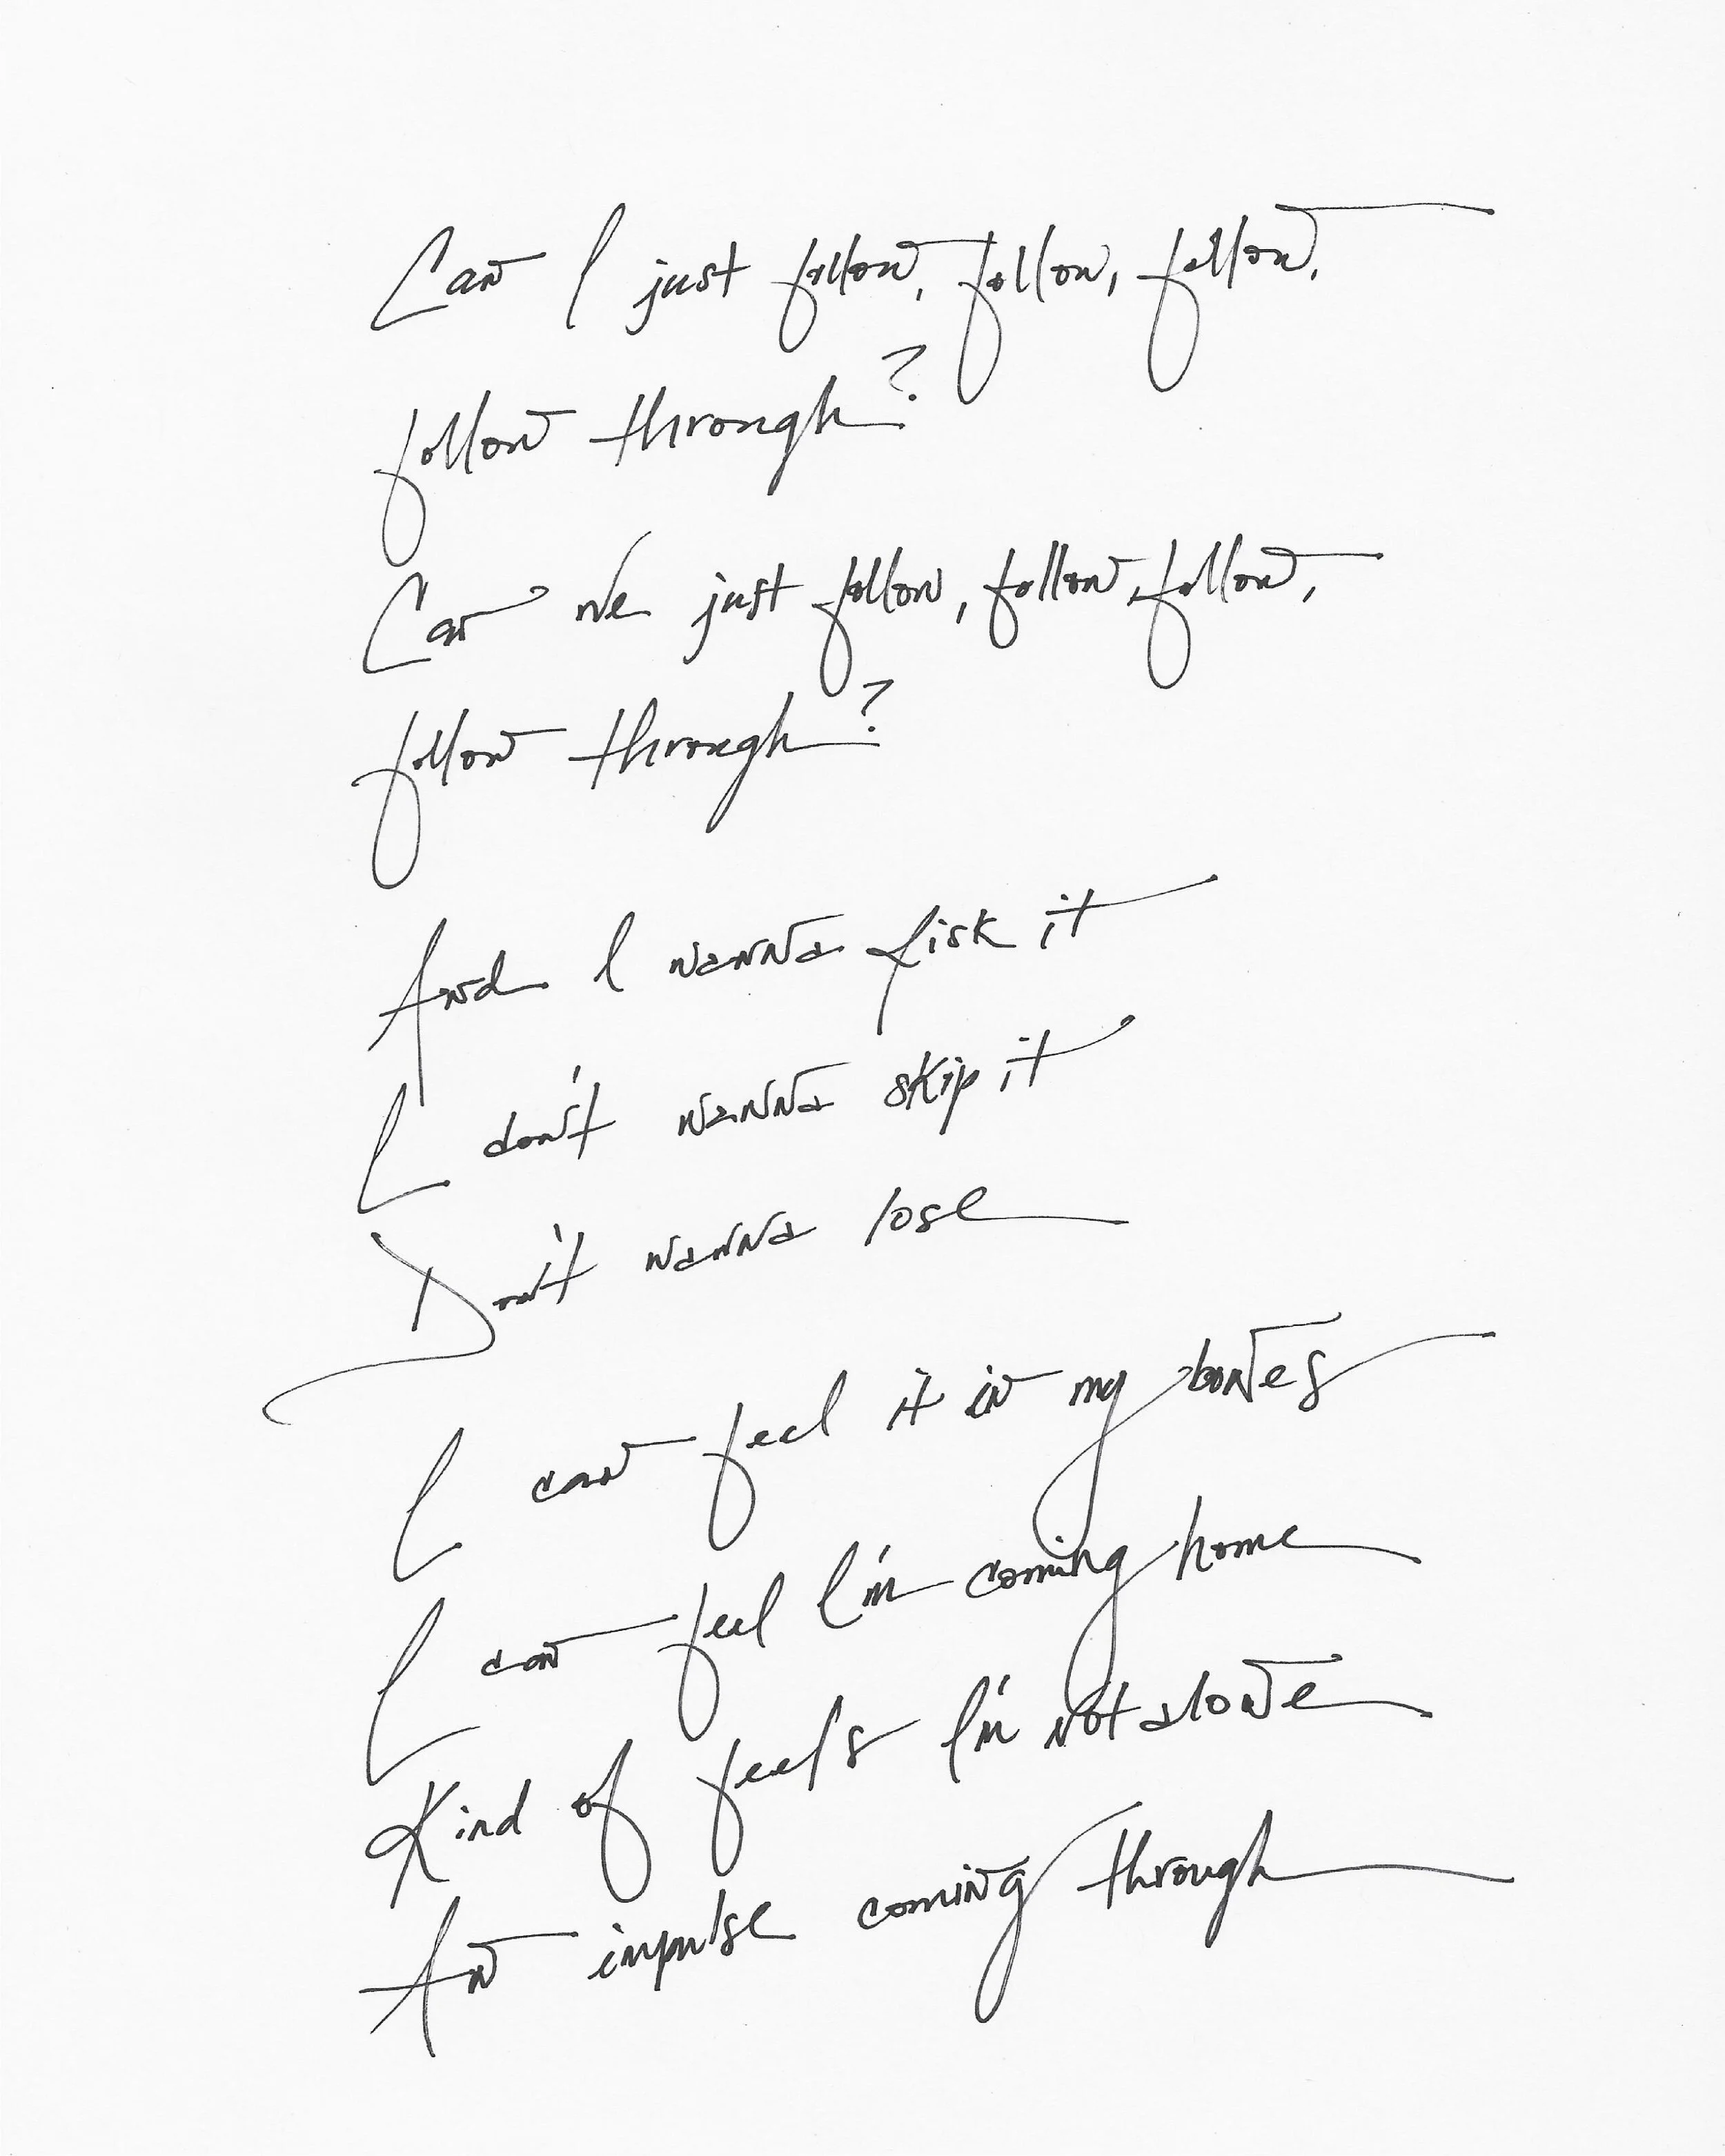 Can I just follow, follow, follow,
follow through?
Can we just follow, follow, follow,
follow through?
And I wanna risk it
I don't wanna skip it
Don't wanna lose
I can feel it in my bones
I can feel I'm coming home
Kind of feels I'm not alone
An impulse coming through